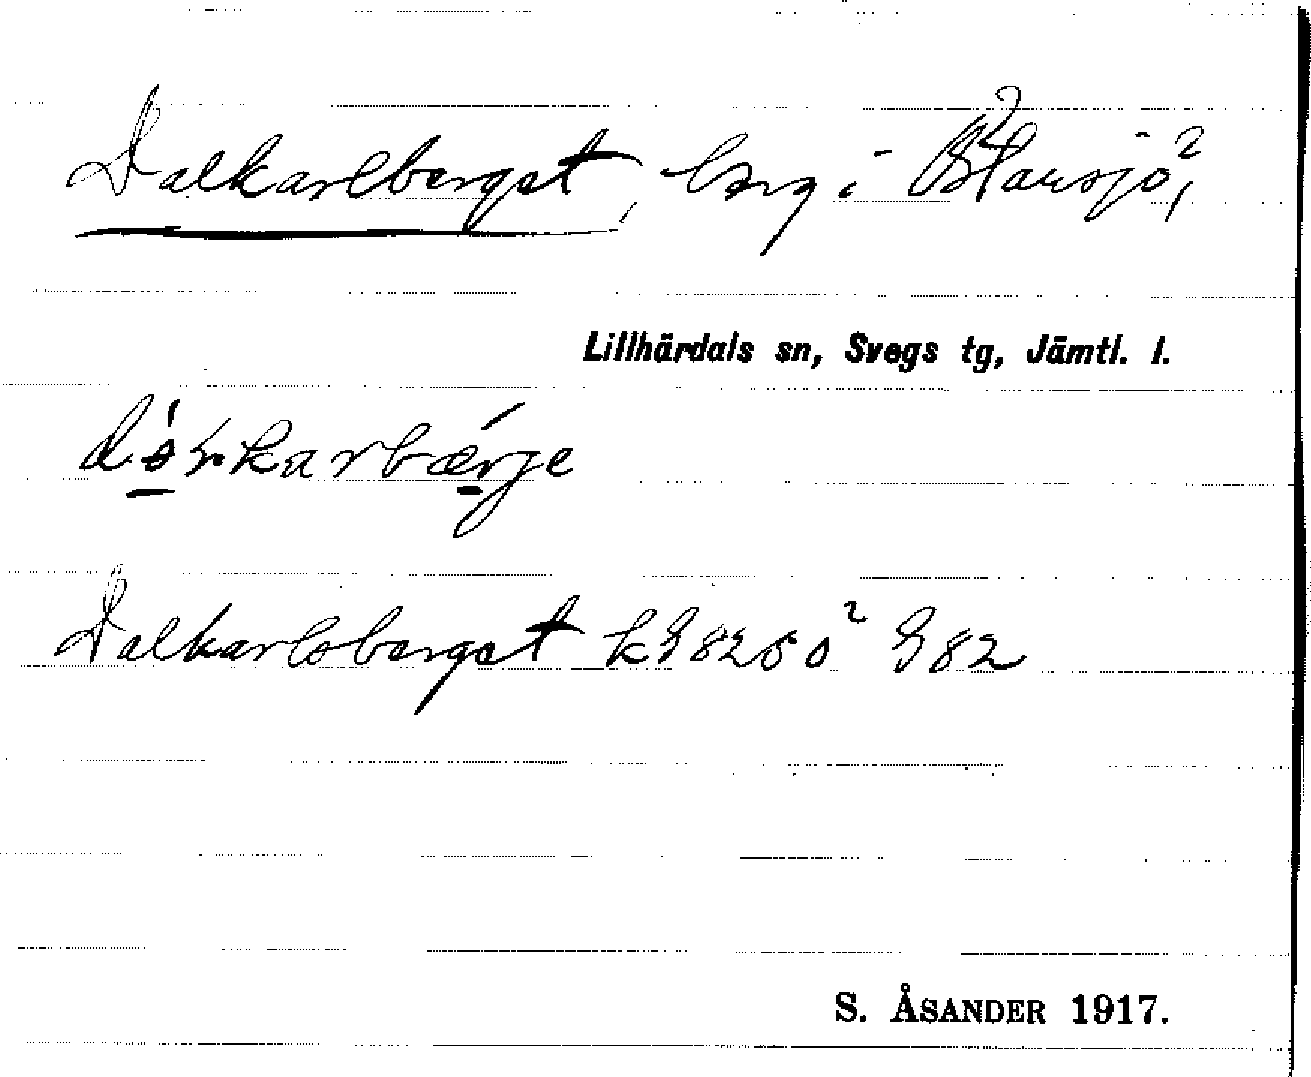 Dalkarlberget, berg i Blansjö,
Lillhärdals sn, Svegs tg, Jämtl. l.
Dalkarlsberget k G8250 G82
S. ÅSANDER 1917.